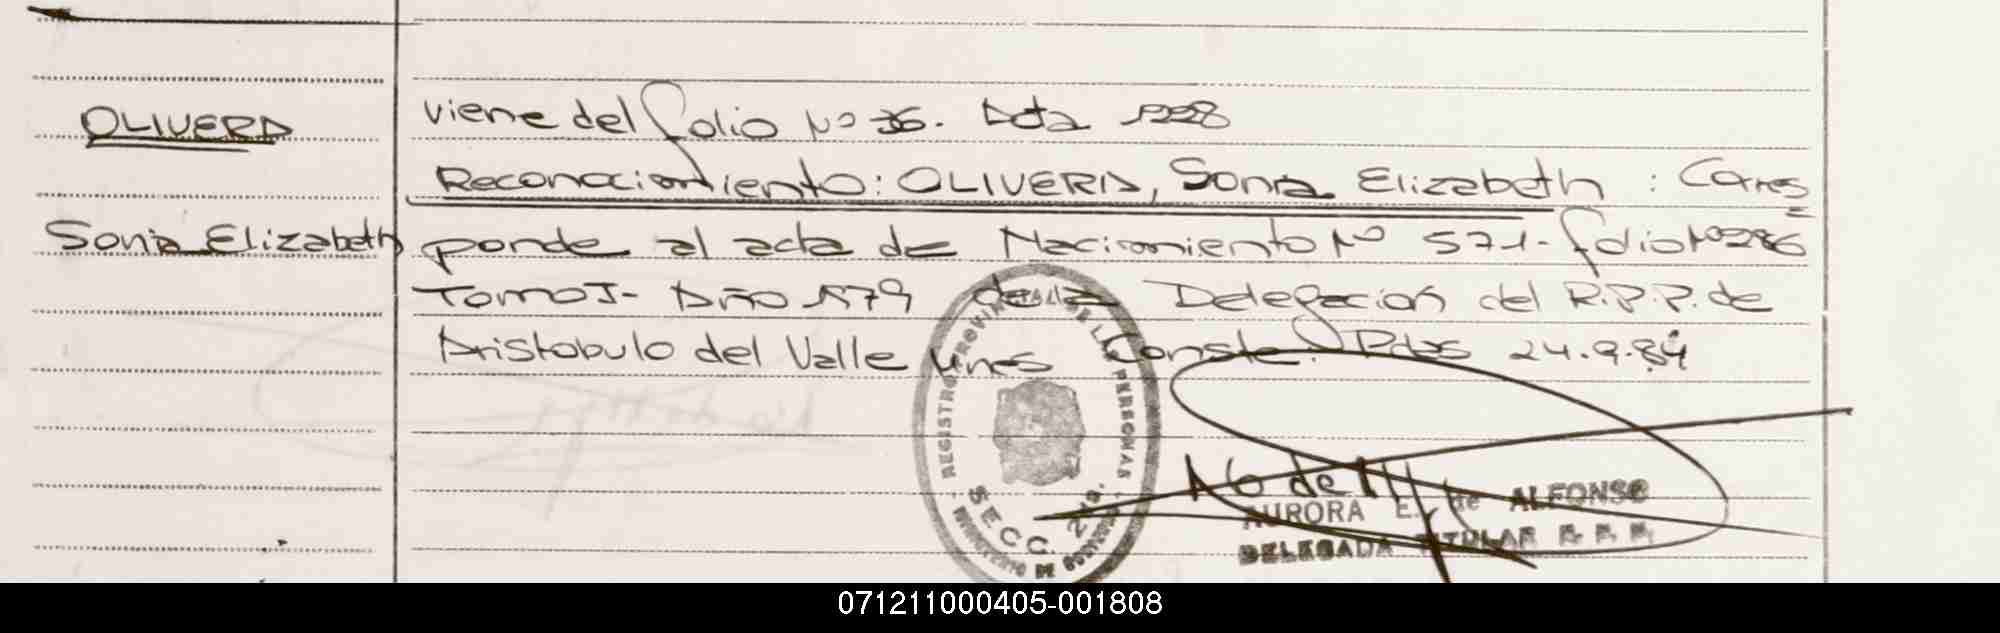 OLIVERA
Sonia Elizabeth
viene del folio Nº 36. Acta 1228
Reconocimiento: OLIVERA, Sonia Elizabeth : Corres
ponde al acta de Nacimiento Nº 571- folio Nº 286
Tomo I- Año 1979 de la Delegación del R.P.P. de
Aristobulo del Valle Mnes Conste. Pdas 24.9.84
REGISTRO PROVINCIAL DE LAS PERSONAS
SECC. 2da.
MINISTERIO DE GOBIERNO
AURORA E. de ALFONSO
DELEGADA TITULAR R. P. P.
071211000405-001808